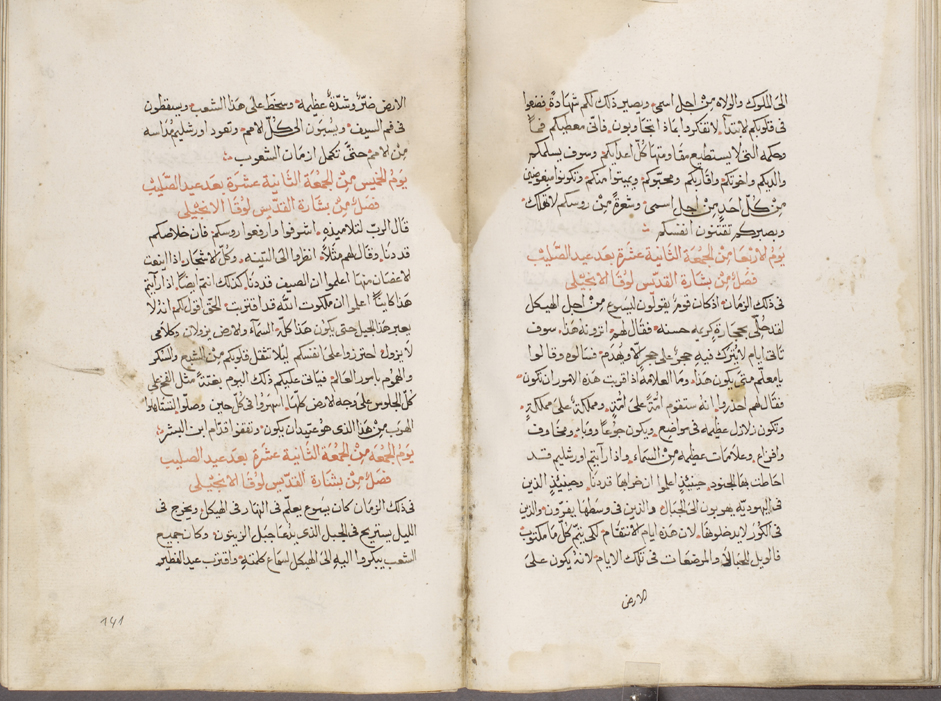 الى الملوك والولاه من اجل اسمي ويصير ذلك لكم شهادة فضعوا
في قلوبكم لابتدا لا تفتكروا بماذا تجاوبون فاني معطيكم فماً
وحكمه التي لا يستطيع مقاومتها كل اعدايكم وسوف يسلمكم
والديكم واخوتكم واقاربكم ومحبوكم ويميتوا منكم وتكونوا مبغوضين
من كل احد من اجل اسمي وشعرة من روسكم لا تهلك
وبصبركم تقتنون انفسكم
يوم الاربعا من الجمعة الثانية عشرة بعد عيد الصليب
فصل من بشارة القديس لوقا الانجيلي
في ذلك الزمان اذ كان قوم يقولون ليسوع من اجل الهيكل
لقد حلي بحجارة كريمه حسنه فقال لهم اترونه هذا سوف
تاتي ايام لا يترك فيه حجرٌ على حجر الا ويهدم فسالوه وقالوا
يا معلم متى يكون هذا وما العلامة اذا قربت هذه الامور ان تكون
فقال لهم احذروا انه ستقوم امّة على امّةٍ ومملكةٌ على مملكةٍ
وتكون زلازل عظيمه في مواضع ويكون جوعاً ووباء ومخاوف
وافزاع وعلامات عظيمه من السماء واذا رايتم اورشليم قد
احاطت بها الجنود حينيذٍ اعلموا ان خرابها قد دنا وحينيذٍ الذين
في اليهوديّة يهربون الى الجبال والذين في وسطها يفرّون والذين
في الكُوَر لا يدخلوها لان هذه ايام الانتقام لكي يتم كل ما مكتوبٌ
فالويل للحبالى والمرضعات في تلك الايام لانه يكون على
الارض
الارض ضرٌ وشدّةٌ عظيمه وسخط على هذا الشعب ويسقطون
في فم السيف ويُسبَون الى كلّ الامم وتعود اورشليم مداسه
من الامم حتى تكمل ازمان الشعوب
يوم الخميس من الجمعة الثانية عشرة بعد عيد الصليب
فصل من بشارة القديس لوقا الانجيلي
قال الرب لتلاميذه اشرفوا وارفعوا روسكم فان خلاصكم
قد دنا وقال لهم مثلاً انظروا الى التينه وكلّ الاشجار اذا اينعت
الاغصان منها اعلموا ان الصيف قد دنا كذلك انتم ايضاً اذا رايتم
هذا كايناً اعلموا ان ملكوت الله قد اقتربت الحق اقول لكم انه لا
يعبر هذا الجيل حتى يكون هذا كلّه السماء والارض يزولان وكلامي
لا يزول احترزوا على انفسكم ليلا تثقل قلوبكم من الشبع والسكر
والهموم بامور العالم فياتي عليكم ذلك اليوم بغتةً مثل الفخ على
كلّ الجلوس على وجه الارض كلها اسهروا في كلّ حين وصلّوا لتستاهلوا
الهرب من هذا الذي هو عتيدان يكون وتقفوا قدّام ابن البشر
يوم الجمعة من الجمعة الثانية عشرة بعد عيد الصليب
فصل من بشارة القديس لوقا الانجيلي
في ذلك الزمان كان يسوع يعلّم في النهار في الهيكل ويخرج في
الليل يستريح في الجبل الذي يدعا جبل الزيتون وكان جميع
الشعب يبكروا اليه الى الهيكل لسماع كلمته واقترب عيد الفطير
141